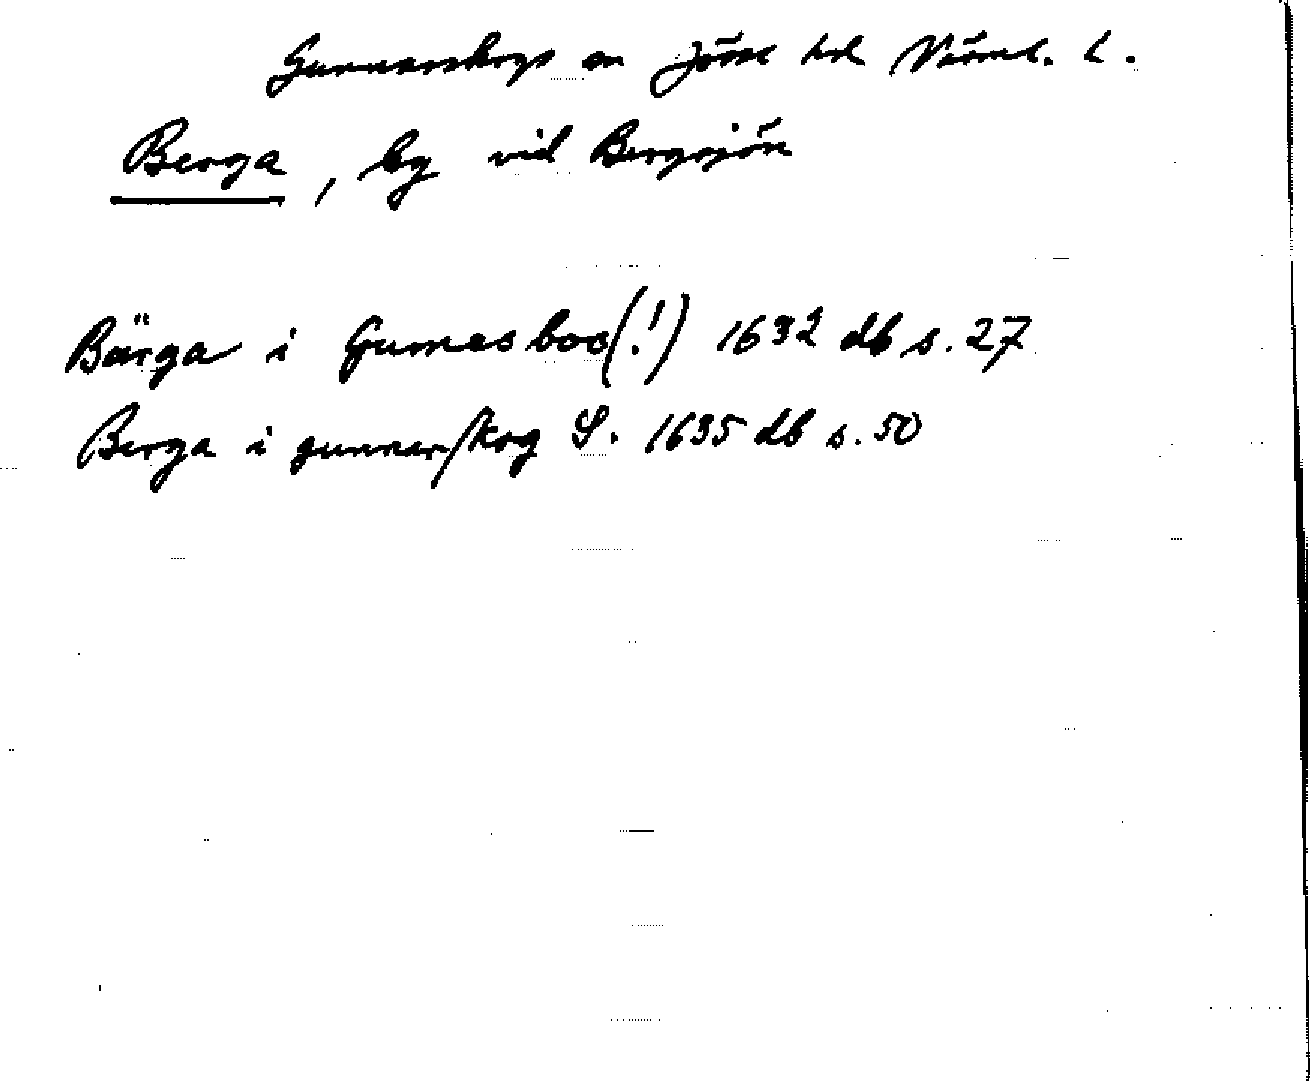 Gunnarskogs sn Jösse hd Värml. L.
Berga, by vid Bergsjön
Bärga i Gumesbos(!) 1632 db s. 27
Berga i gunnarskog S. 1635 db s. 50